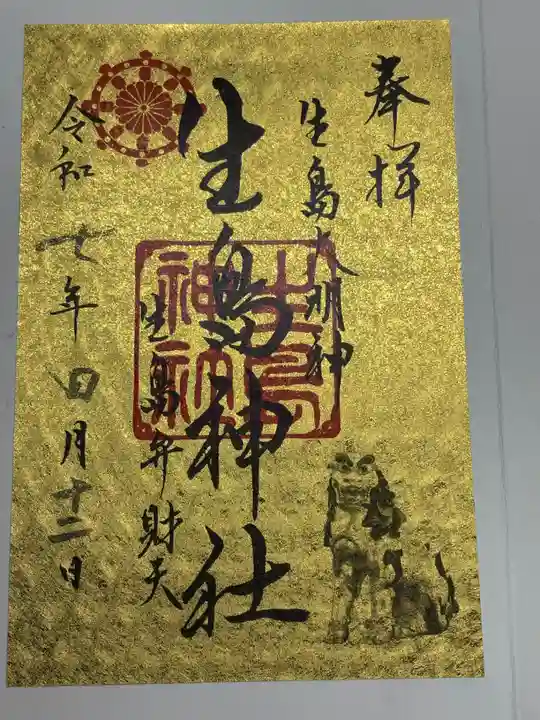 奉拝
生島大明神
生島神社
生島弁財天
令和七年四月十二日
生島
神社